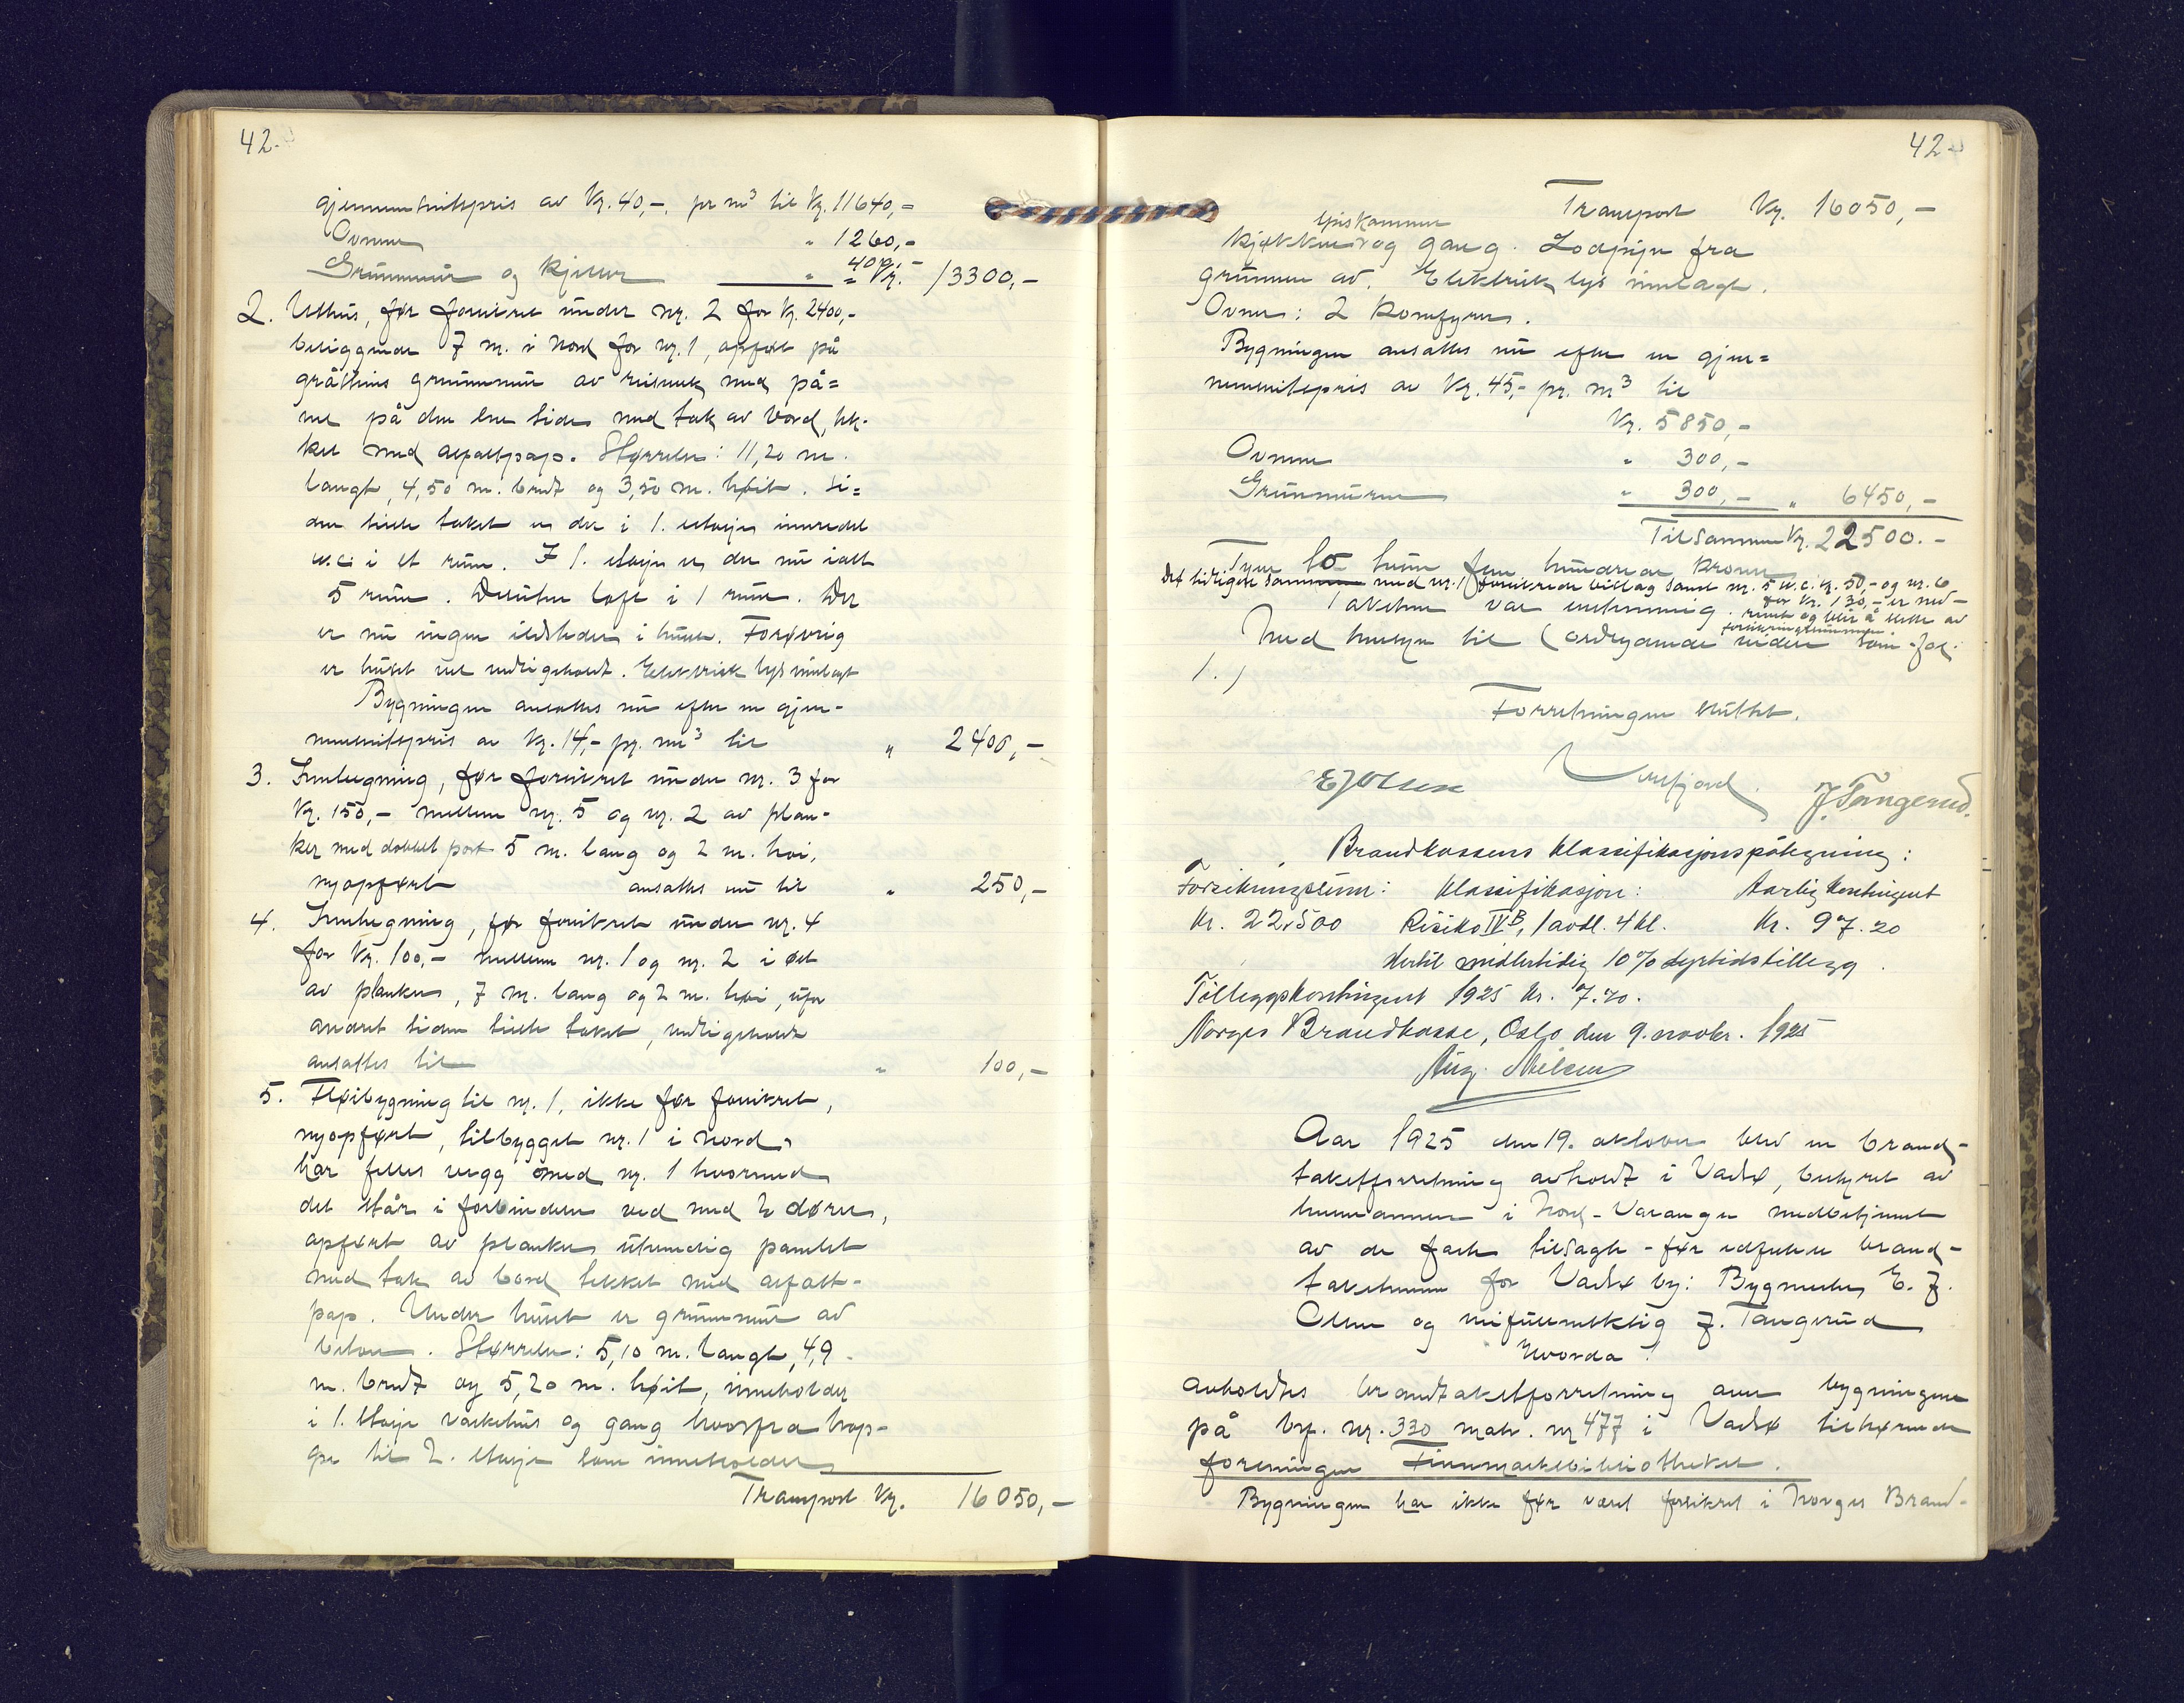 42.
gjennemsnitspris av Kr. 40,-, pr m³ til Kr. 11640,-
Ovnene " 1260,-
Grunnmur og kjeller " 400,-
= Kr. 13300,-
2. Uthus, før forsikret under nr. 2 for Kr. 2400,-
beliggende 7 m. i Nord for nr. 1, opført på
gråstens grunnmur av reisverk med på=
nel på den ene side med tak av bord, tek-
ket med asfaltpap. Størrelse: 11,20 m.
langt, 4,50 m. bredt og 3,50 m. høit. Si=
den siste takst er der i 1. etasje innredet
w.c. i et rum. I 1. etasje er der nu ialt
5 rum. Desuten loft i 1 rum. Der
er nu ingen ildsteder i huset. Forøvrig
er huset vel vedligeholdt. Elektrisk lys innlagt
Bygningen ansættes nu efter en gjen-
nemsnitspris av Kr. 14,- pr. m³ til " 2400,-
3. Innhegning, før forsikret under nr. 3 for
Kr. 150,- mellem nr. 5 og nr. 2 av plan-
ker med dobbel port 5 m. lang og 2 m. høi,
nyopført ansattes nu til " 250,-
4. Innhegning, før forsikret under nr. 4
for Kr. 100,- mellem nr. 1 og nr. 2 i øst
av planker, 7 m. lang og 2 m. høi, ufor
andret siden siste takst, vedligeholdt
ansattes til " 100,-
5. Fløibygning til nr. 1, ikke før forsikret,
nyopført, tilbygget nr. 1 i nord,
har felles vegg med nr. 1 hvormed
det står i forbindelse ved med 2 dører,
opført av planker utvendig panelet
med tak av bord tekket med asfalt-
pap. Under huset er grunnmur av
beton. Størrelse: 5,10 m. langt, 4,9
m. bredt og 5,20 m. høit, inneholder
i 1. etasje vaskehus og gang hvorfra trap-
pe til 2. etasje som inneholder
Transport Kr. 16050,-
42
Transport Kr. 16050,-
spiskammer
kjøkken og gang. Lodpipe fra
grunnen av. Elektrisk lys innlagt.
Ovner: 2 Komfyrer.
Bygningen ansattes nu efter en gjen=
nemsnitspris av Kr. 45,- pr. m³ til
Kr. 5850,-
Ovnene " 300,-
Grunnmuren " 300,- " 6450,-
Tilsammen Kr. 22500.-
Tyve to tusen fem hundrede kroner
Det tidligere sammen med nr. 1 forsikrede bislag samt nr. 5 w.c. kr. 50,- og nr. 6
for kr. 130,- er ned-
Taksten var enstemmig. revet og blir å slette av
forsikringssummen
Med hensyn til (ordlydende siden som fol.
1.)
Forretningen sluttet.
E J Olsen
J. Tangerud.
Brandkassens klassifikasjonspåtegning:
Forsikringssum: Klassifikasjon: Aarlig kontingent
Kr. 22.500 Risiko IVB, 1 avdl. 4 kl. Kr. 97.20
Hertil midlertidig 10% dyrtidstillegg.
Tilleggskontingent 1925 kr. 7.70.
Norges Brandkasse, Oslo den 9. novbr. 1925
Aug. Nielsen
Aar 1925 den 19. oktober blev en brand-
takstforretning avholdt i Vadsø, bestyret av
lensmannen i Nord-Varanger medbetjent
av de fast tilsagte - før edfestede brand-
takstmenn for Vadsø by: Bygmester E. J.
Olsen og veifullmektig J. Tangerud
Hvorda!
avholdtes brandtakstforretning over bygningene
på brf. nr. 330 matr. nr 477 i Vadsø tilhørende
foreningen Finnmarksbibliotheket.
Bygningen har ikke før været forsikret i Norges Brand-